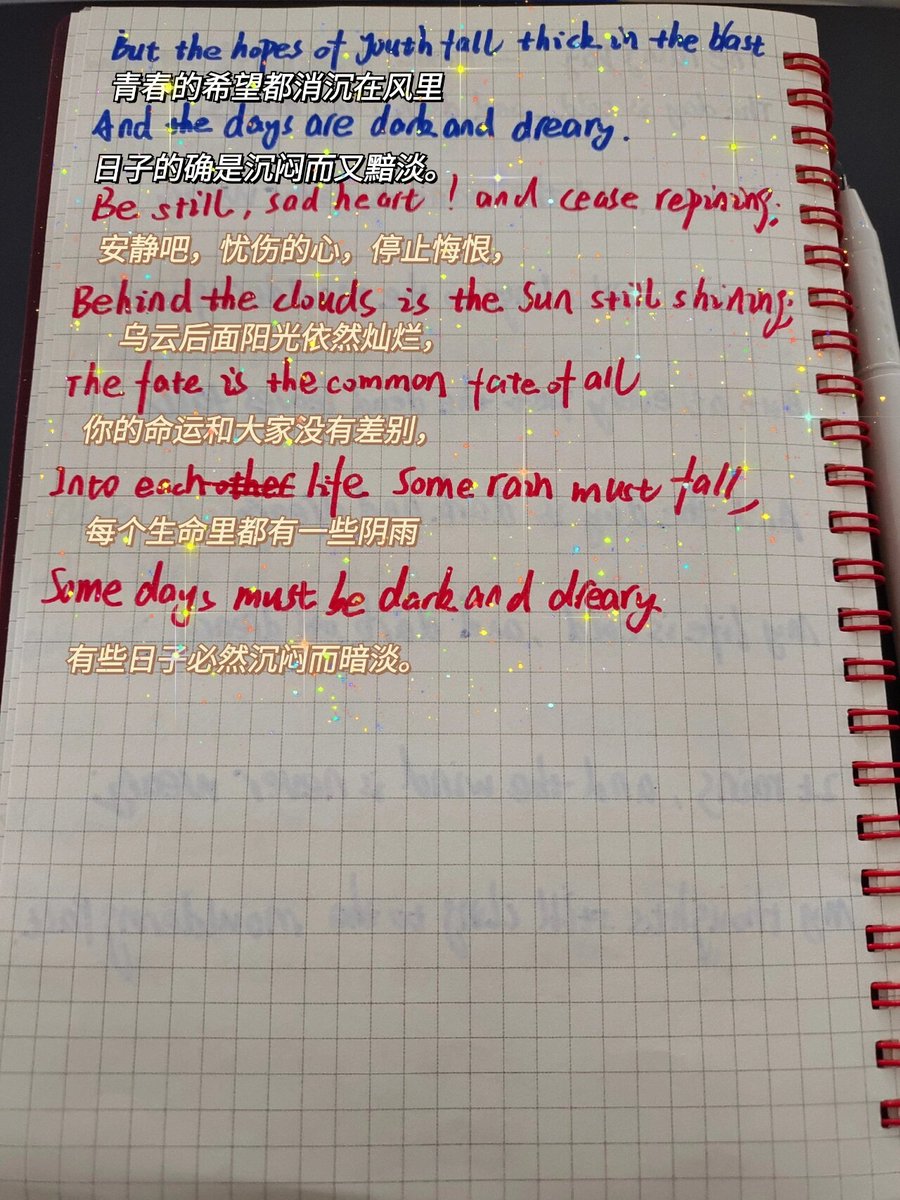 But the hopes of youth fall thick in the blast
青春的希望都消沉在风里
And the days are dark and dreary.
日子的确是沉闷而又黯淡。
Be still, sad heart! and cease repining;
安静吧，忧伤的心，停止悔恨，
Behind the clouds is the Sun still shining;
乌云后面阳光依然灿烂，
The fate is the common fate of all
你的命运和大家没有差别，
Into each other life Some rain must fall,
每个生命里都有一些阴雨
Some days must be dark and dreary
有些日子必然沉闷而暗淡。